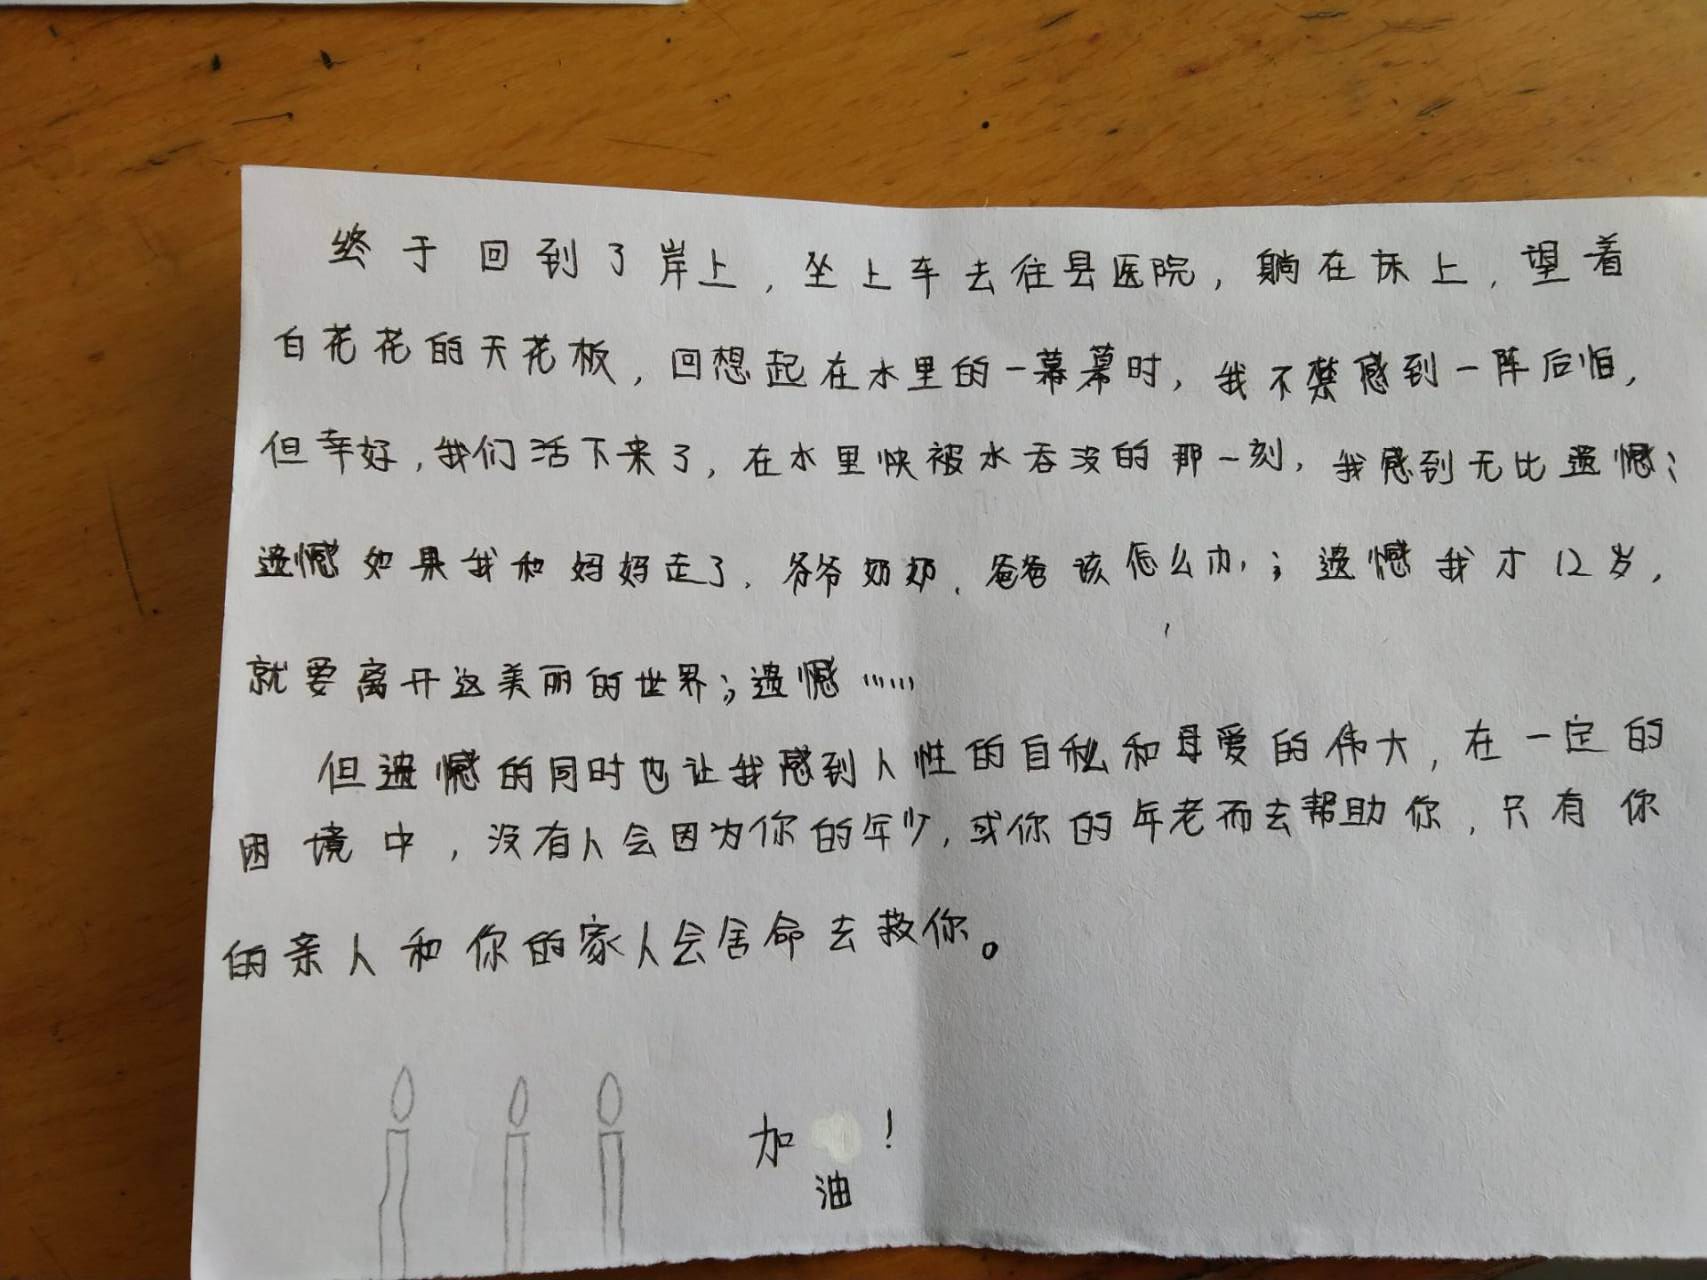 终于回到了岸上，坐上车去往县医院，躺在床上，望着
白花花的天花板，回想起在水里的一幕幕时，我不禁感到一阵后怕，
但幸好，我们活下来了，在水里快被水吞没的那一刻，我感到无比遗憾；
遗憾如果我和妈妈走了，爷爷奶奶、爸爸该怎么办，；遗憾我才12岁，
就要离开这美丽的世界；遗憾……
但遗憾的同时也让我感到人性的自私和母爱的伟大，在一定的
困境中，没有人会因为你的年少，或你的年老而去帮助你，只有你
的亲人和你的家人会舍命去救你。
加！
油